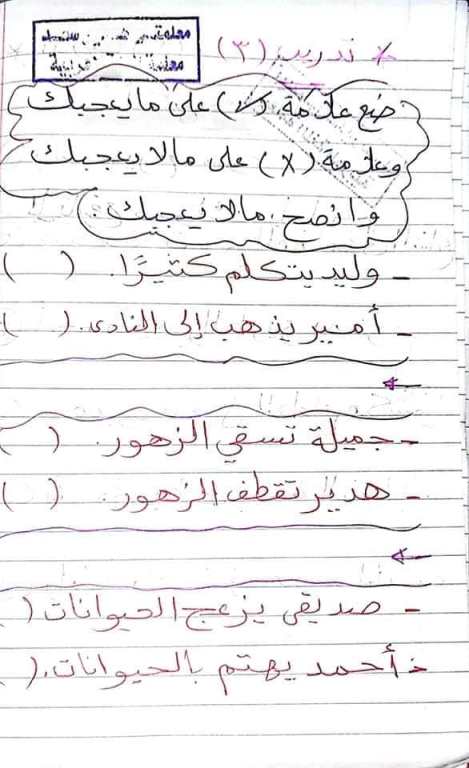 * تدريب (٣)
ضع علامة (✓) على ما يعجبك
وعلامة (X) على مالا يعجبك
وانصح مالا يعجبك:
- وليد يتكلم كثيرًا. (    )
- أمير يذهب إلى النادى. (    )
- جميلة تسقي الزهور. (    )
- هدير تقطف الزهور. (    )
- صديقي يزعج الحيوانات (
- أحمد يهتم بالحيوانات. (